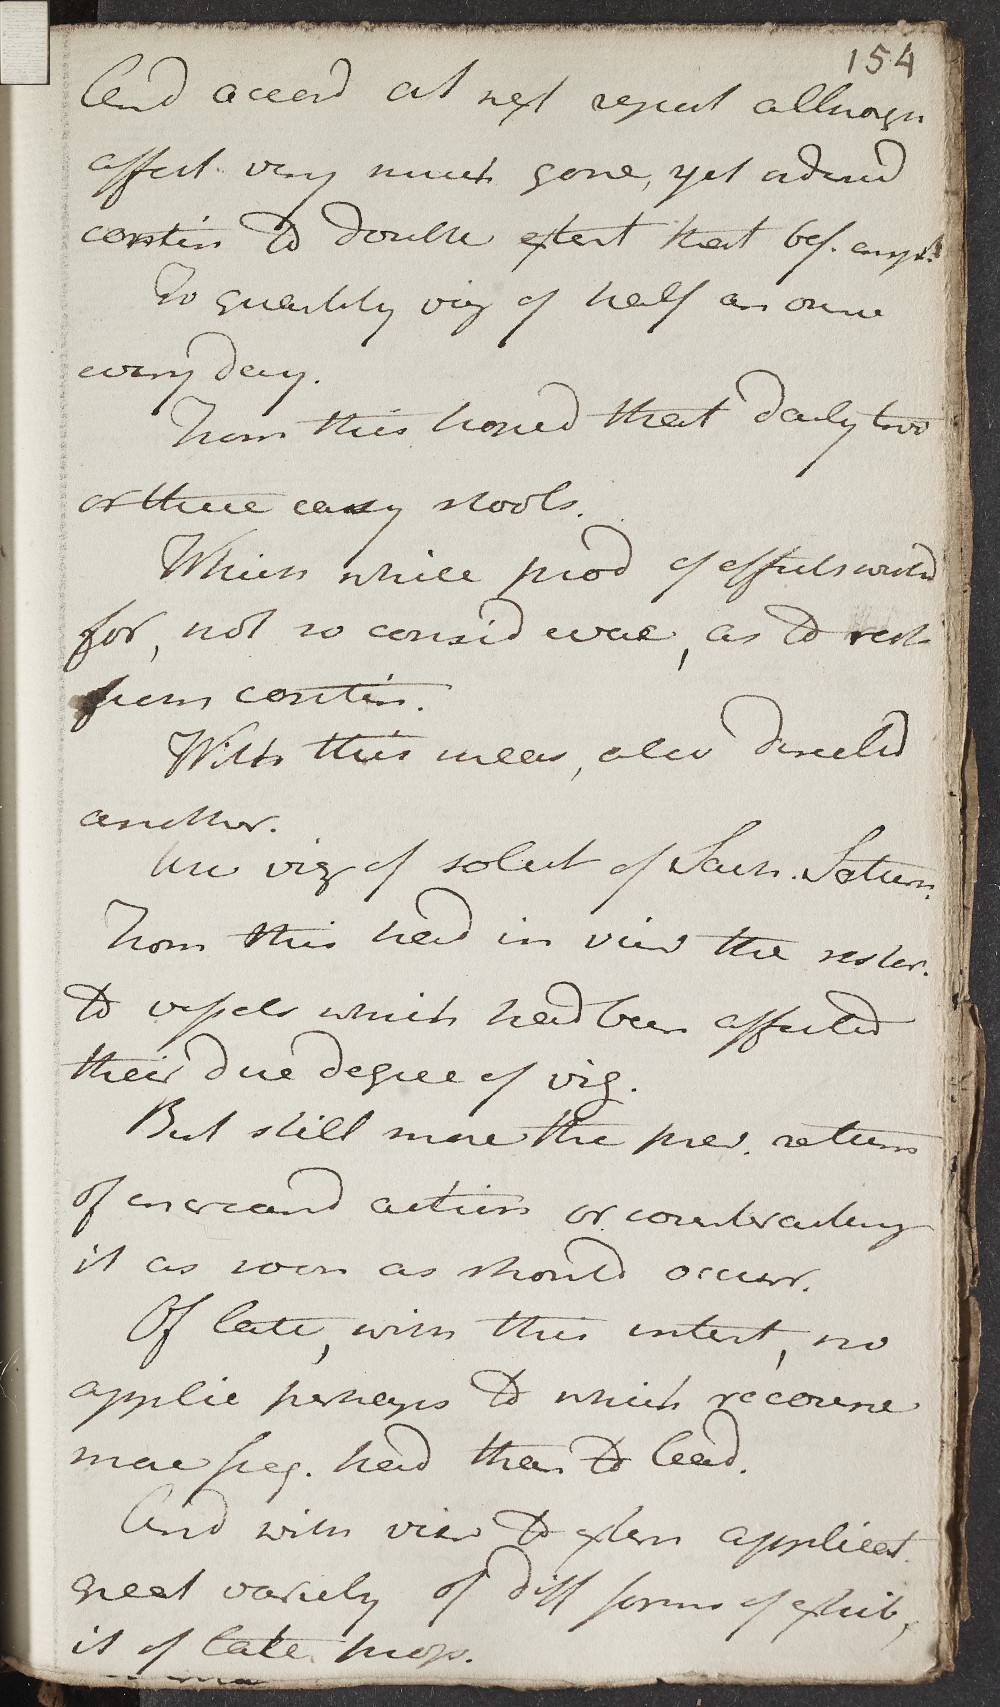 154
And accord at next report altho'
affect very much gone, yet advised
contin to double extent that bef. empl.
To quantity viz of half an ounce
every day.
From this hoped that daily two
or three easy stools.
Which while prod of effects would
for, not so consid evac, as to rest
from contin.
With this meas, also directed
another.
Use viz of solut of Sach. Saturn.
From this had in view the restor.
to vessels which had been affected
their due degree of vig.
But still more the prev. return
of increased action or counteracting
it as soon as should occur.
Of late, with this intent, no
applic perhaps to which recourse
more freq. had than to lead.
And with view to extern applicat.
great variety of diff forms of exhib,
it of late prop.